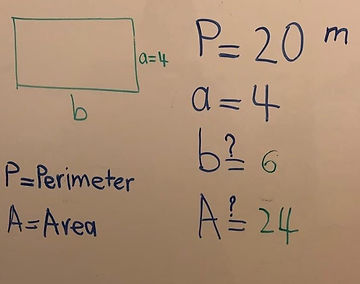 a=4
b
P=Perimeter
A=Area
P=20 m
a=4
b=? 6
A=? 24